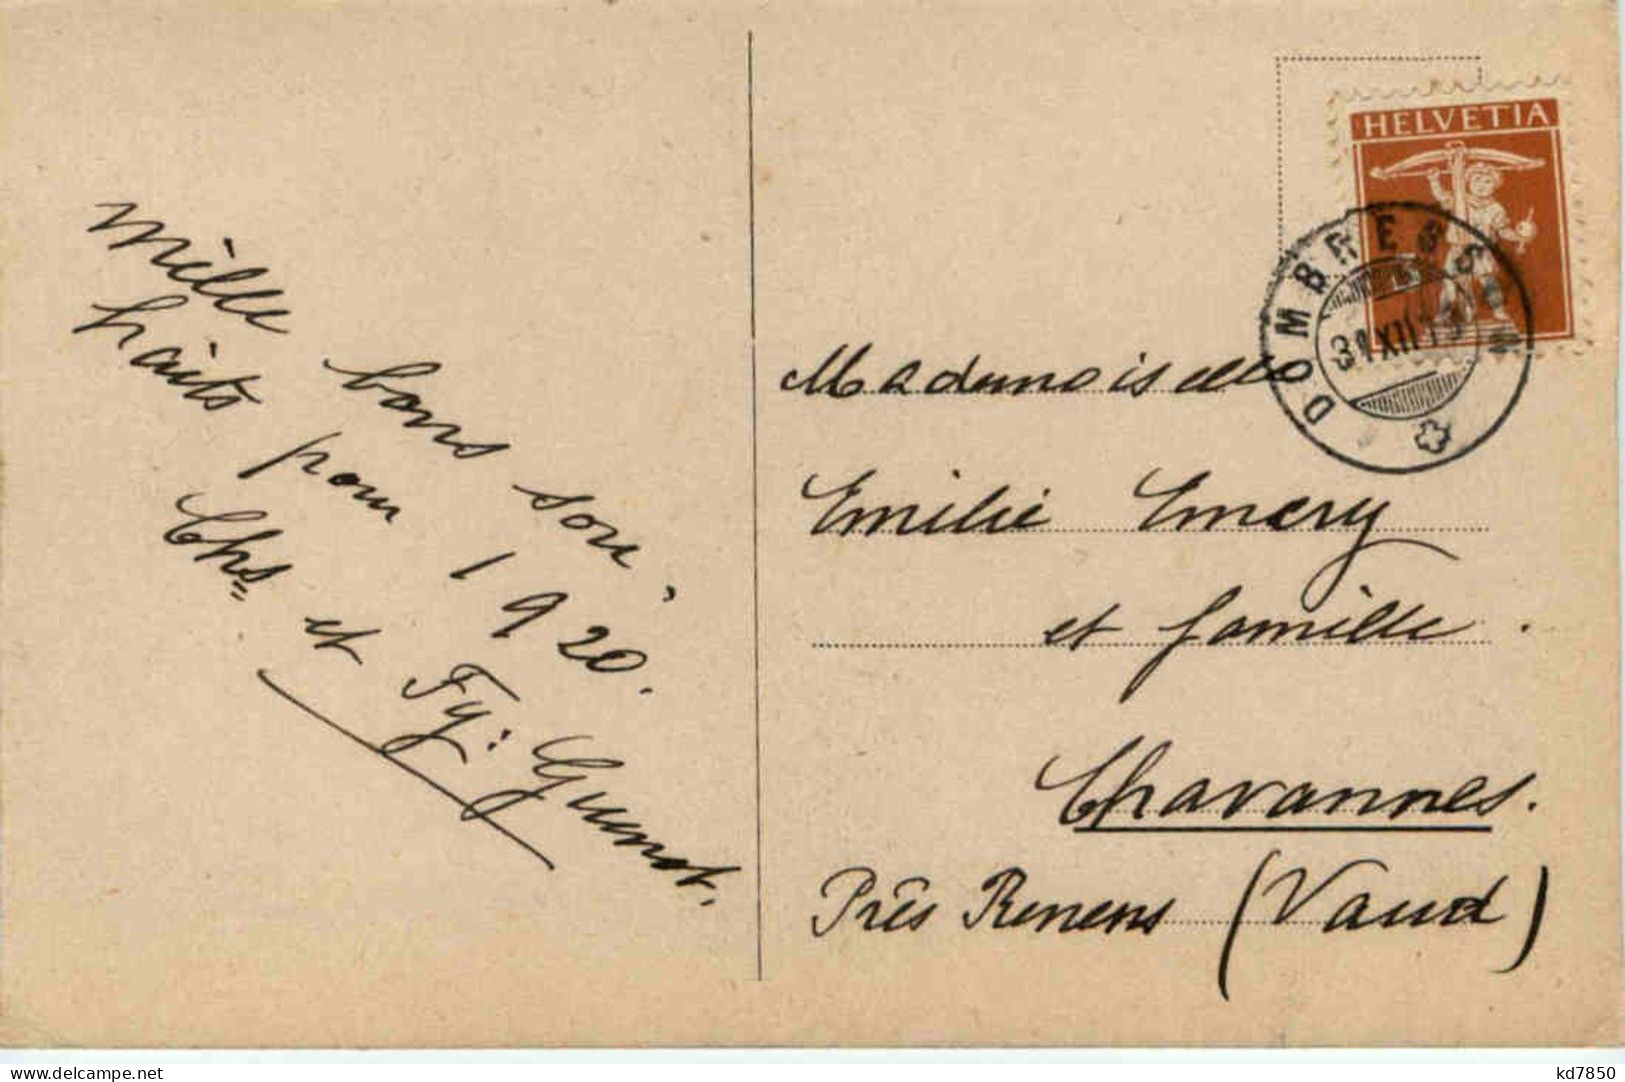 mille bons sou-
haits pour 1920.
Chs et Fy: Guenot.
HELVETIA
DOMBRESSON
31 XII 19
Mademoiselle
Emilie Emery
et famille.
Chavannes.
Près Renens (Vaud)
delcampe.net
kd7850